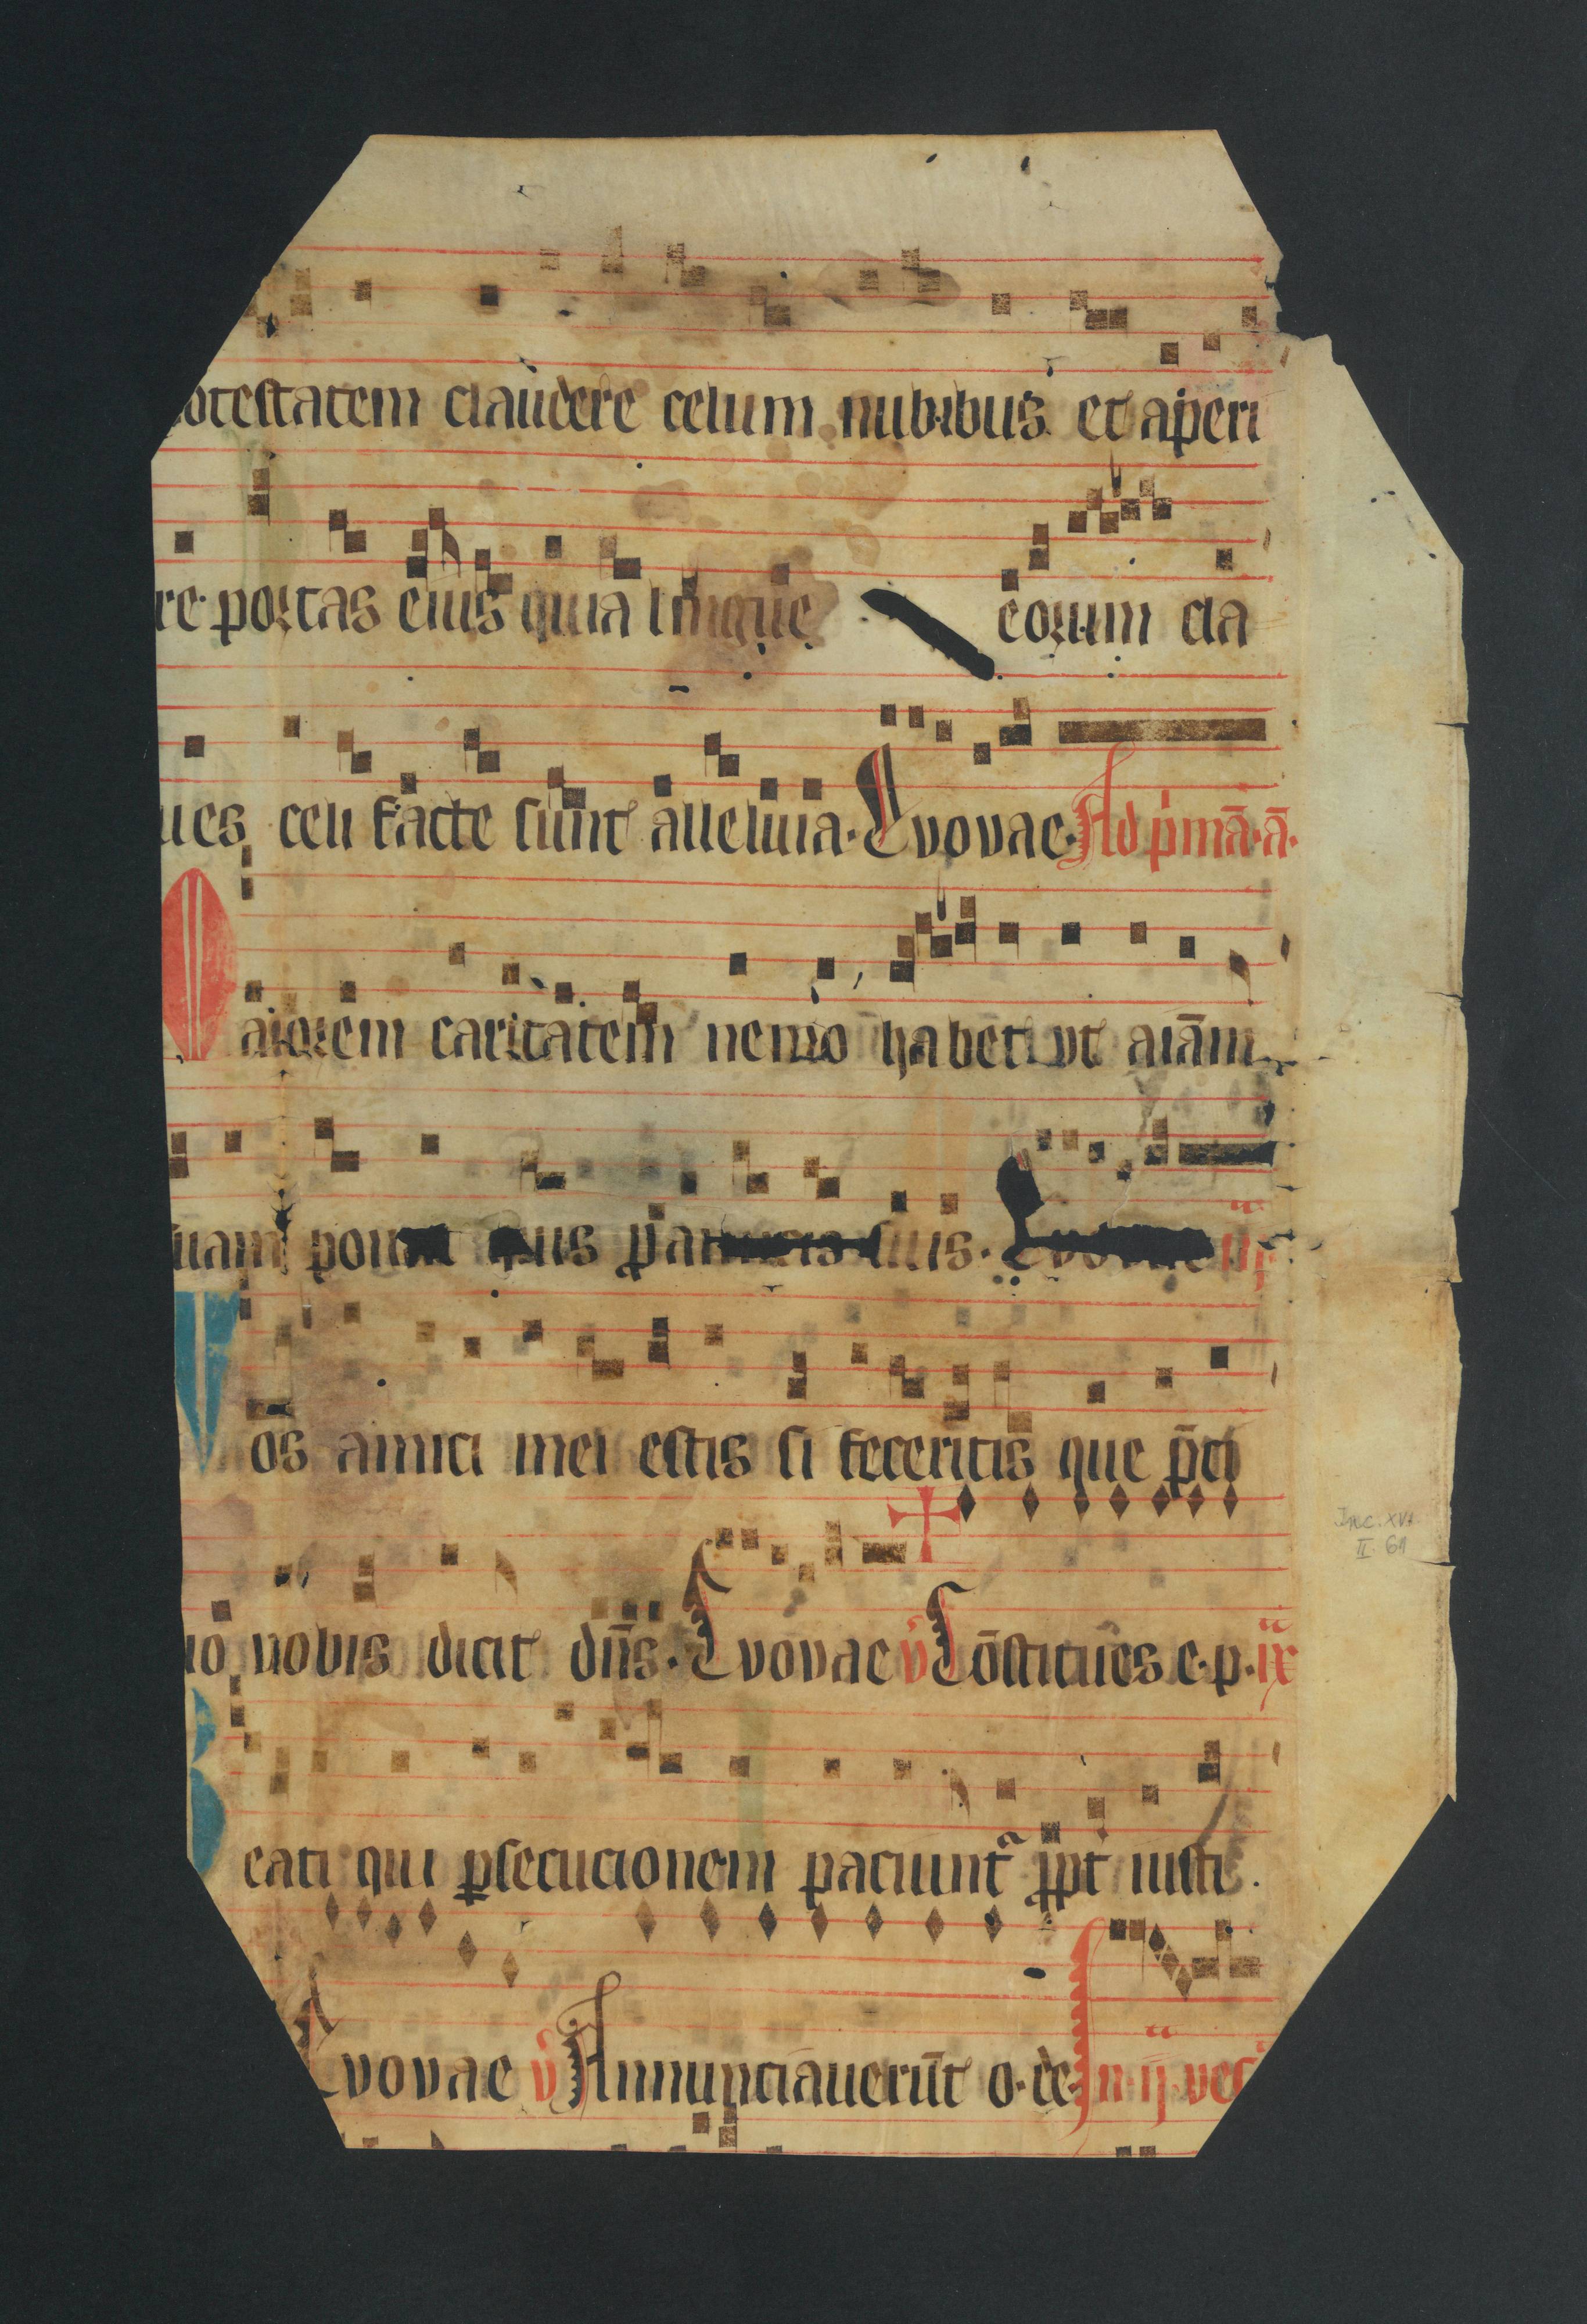 otestatem claudere celum nubibus et aperi
re portas eius quia lingue eorum cla
ues celi facte sunt alleluia. Evovae. Ad p̾mā. ā.
aiorem caritatem nemo habet ut aīam
uam ponat quis p̱ amicis suis. Evovae
os amici mei estis si feceritis que p̄ci
io vobis dicit dn̄s. Evovae v̾ Cōstitues e. p. ix
Inc. XVI.
II 61
eati qui p̱secucionem paciunt̃ ꝓpt iusti.
Evovae v̾ Annunciauerūt o. ee. In. ij. vec